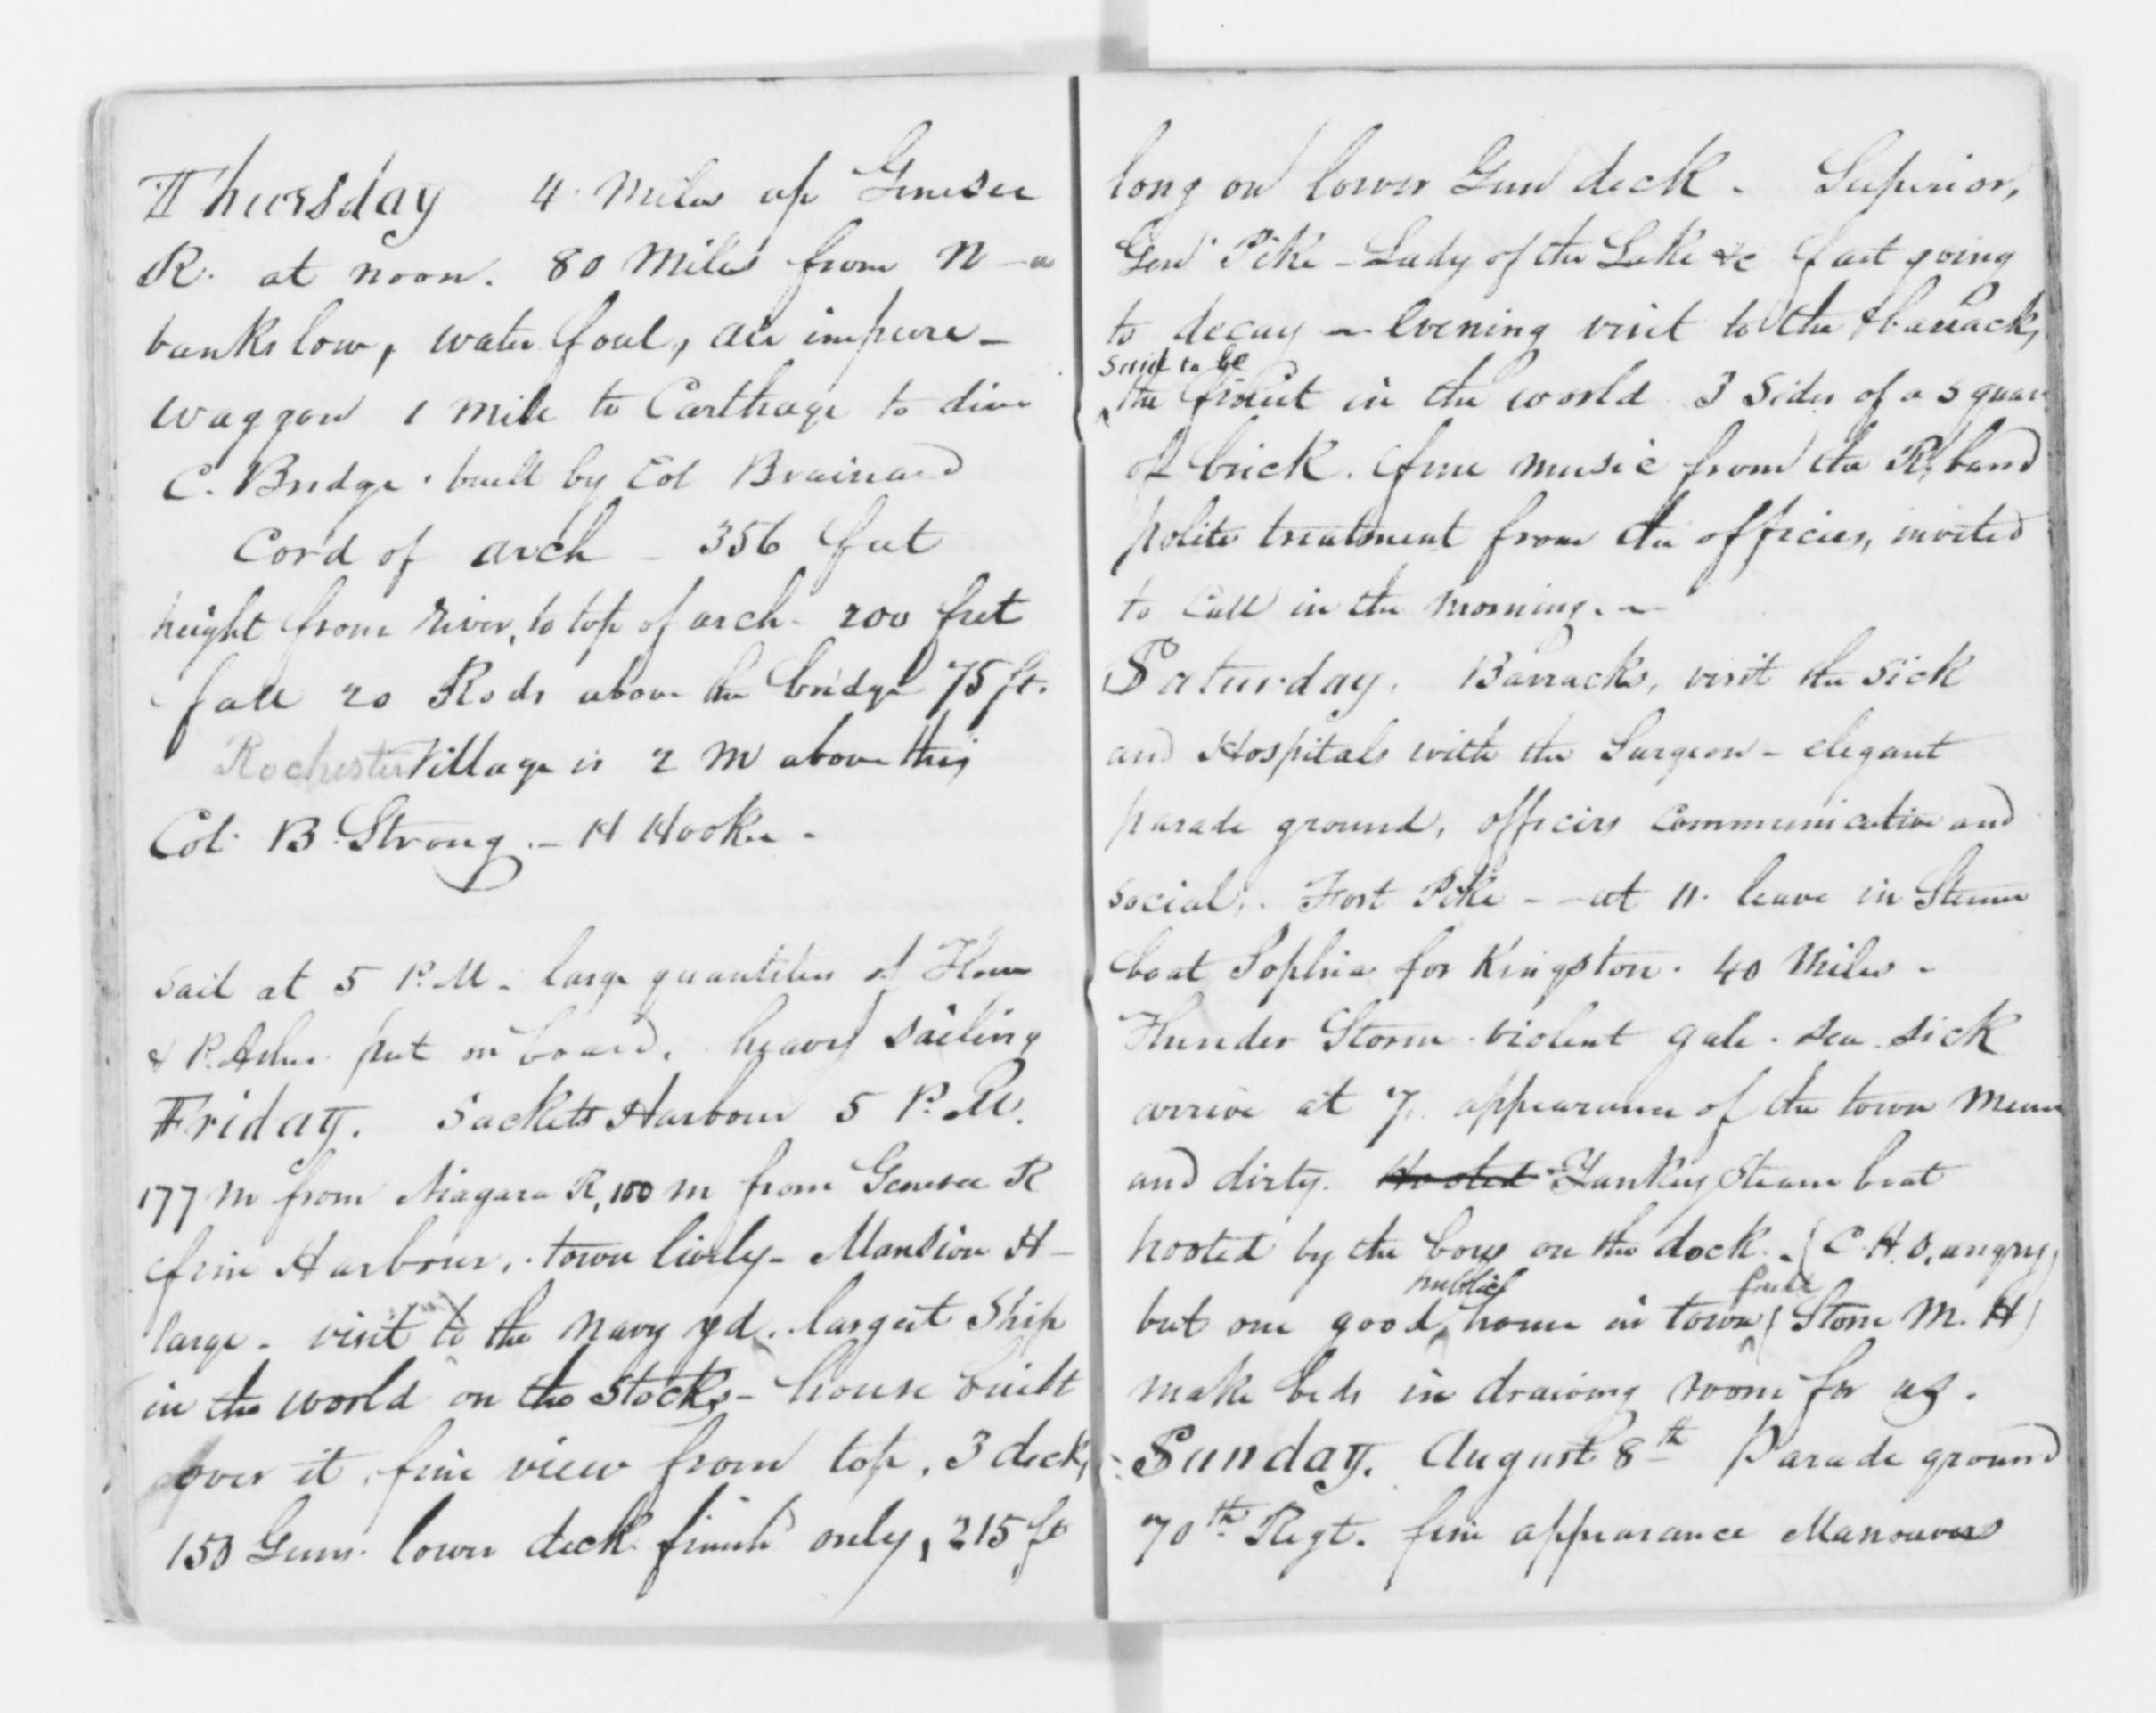 Thursday 4 Miles up Genesee
R. at noon. 80 Miles from N - a
banks low, water foul, air impure -
waggon 1 mile to Carthage to dine
C. Bridge. built by Col Brainard
Cord of arch - 356 feet
height from river, to top of arch - 200 feet
fall 20 Rods above the bridge 75 ft.
Rochester Village is 2 M above this
Col. B. Strong. - H Hooker -
Sail at 5 P. M - large quantities of Flour
& P. Ashes put on board, heavy sailing
Friday. Sackets Harbour 5 P. M.
177 m from Niagara R, 100 m from Genesee R
fine Harbour, town lively - Mansion H -
large - visit to the Navy yd. largest Ship
in the world on the Stocks - house built
over it, fine view from top, 3 deck,
150 Guns. lower deck finishd only, 215 ft
long on lower Gun deck - Superior,
Genl Pike - Lady of the Lake &c fast going
to decay - evening visit to the barrack,
said to be
the finest in the world 3 Sides of a square
of brick. fine music from the R, band
polite treatment from the officers, invited
to call in the morning. -
Saturday. Barracks, visit the sick
and Hospitals with the Surgeon - elegant
parade ground, officers communicative and
social,. Fort Pike - - at 11. leave in Steam
boat Sophia for Kingston. 40 Miles -
Thunder Storm. violent gale. sea sick
arrive at 7. appearance of the town mean
and dirty. Hooted Yankey Steam boat
hooted by the boys on the dock. (C. H. O. angry)
public
but one good house in town (Stone M. H)
make beds in drawing room for us.
Sunday. August 8th Parade ground
70th Regt. fine appearance Manouvers